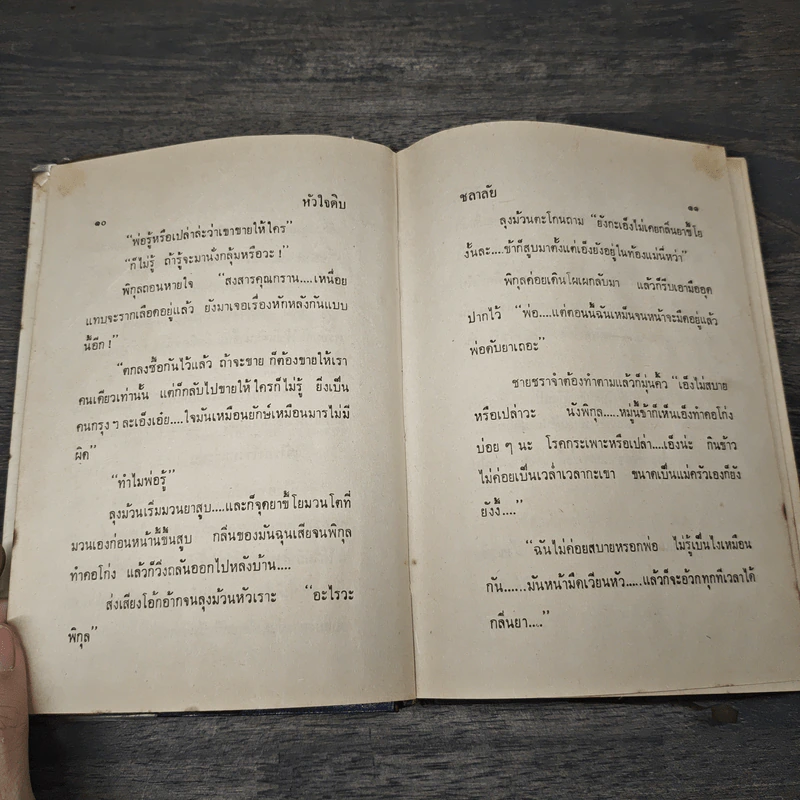 ๑๐
หัวใจดิบ
“พ่อรู้หรือเปล่าล่ะว่าเขาขายให้ใคร”
“ก็ไม่รู้ ถ้ารู้จะมานั่งกลุ้มหรือวะ !”
พิกุลถอนหายใจ “สงสารคุณกราน....เหนื่อย
แทบจะรากเลือดอยู่แล้ว ยังมาเจอเรื่องหักหลังกันแบบ
นี้อีก !”
“ตกลงซื้อกันไว้แล้ว ถ้าจะขาย ก็ต้องขายให้เรา
คนเดียวเท่านั้น แต่ก็กลับไปขายให้ใครก็ไม่รู้ ยิ่งเป็น
คนกรุง ๆ ละเอ็งเอ๋ย....ใจมันเหมือนยักษ์เหมือนมารไม่มี
ผิด”
“ทำไมพ่อรู้”
ลุงม้วนเริ่มมวนยาสูบ....และก็จุดยาขี้โยมวนโตที่
มวนเองก่อนหน้านี้ขึ้นสูบ กลิ่นของมันฉุนเสียจนพิกุล
ทำคอโก่ง แล้วก็วิ่งถลันออกไปหลังบ้าน....
ส่งเสียงโอ้กอ้ากจนลุงม้วนหัวเราะ “อะไรวะ
พิกุล”
ชลาลัย
๑๑
ลุงม้วนตะโกนถาม “ยังกะเอ็งไม่เคยกลิ่นยาขี้โย
งั้นละ....ข้าก็สูบมาตั้งแต่เอ็งยังอยู่ในท้องแม่นี่หว่า”
พิกุลค่อยเดินโผเผกลับมา แล้วก็รีบเอามืออุด
ปากไว้ “พ่อ....แต่ตอนนี้ฉันเหม็นจนหน้าจะมืดอยู่แล้ว
พ่อดับยาเถอะ”
ชายชราจำต้องทำตามแล้วก็มุ่นคิ้ว “เอ็งไม่สบาย
หรือเปล่าวะ นังพิกุล....หมู่นี้ข้าก็เห็นเอ็งทำคอโก่ง
บ่อย ๆ นะ โรคกระเพาะหรือเปล่า....เอ็งน่ะ กินข้าว
ไม่ค่อยเป็นเวล่ำเวลากะเขา ขนาดเป็นแม่ครัวเองก็ยัง
ยังงี้....”
“ฉันไม่ค่อยสบายหรอกพ่อ ไม่รู้เป็นไงเหมือน
กัน......มันหน้ามืดเวียนหัว.....แล้วก็จะอ้วกทุกทีเวลาได้
กลิ่นยา....”